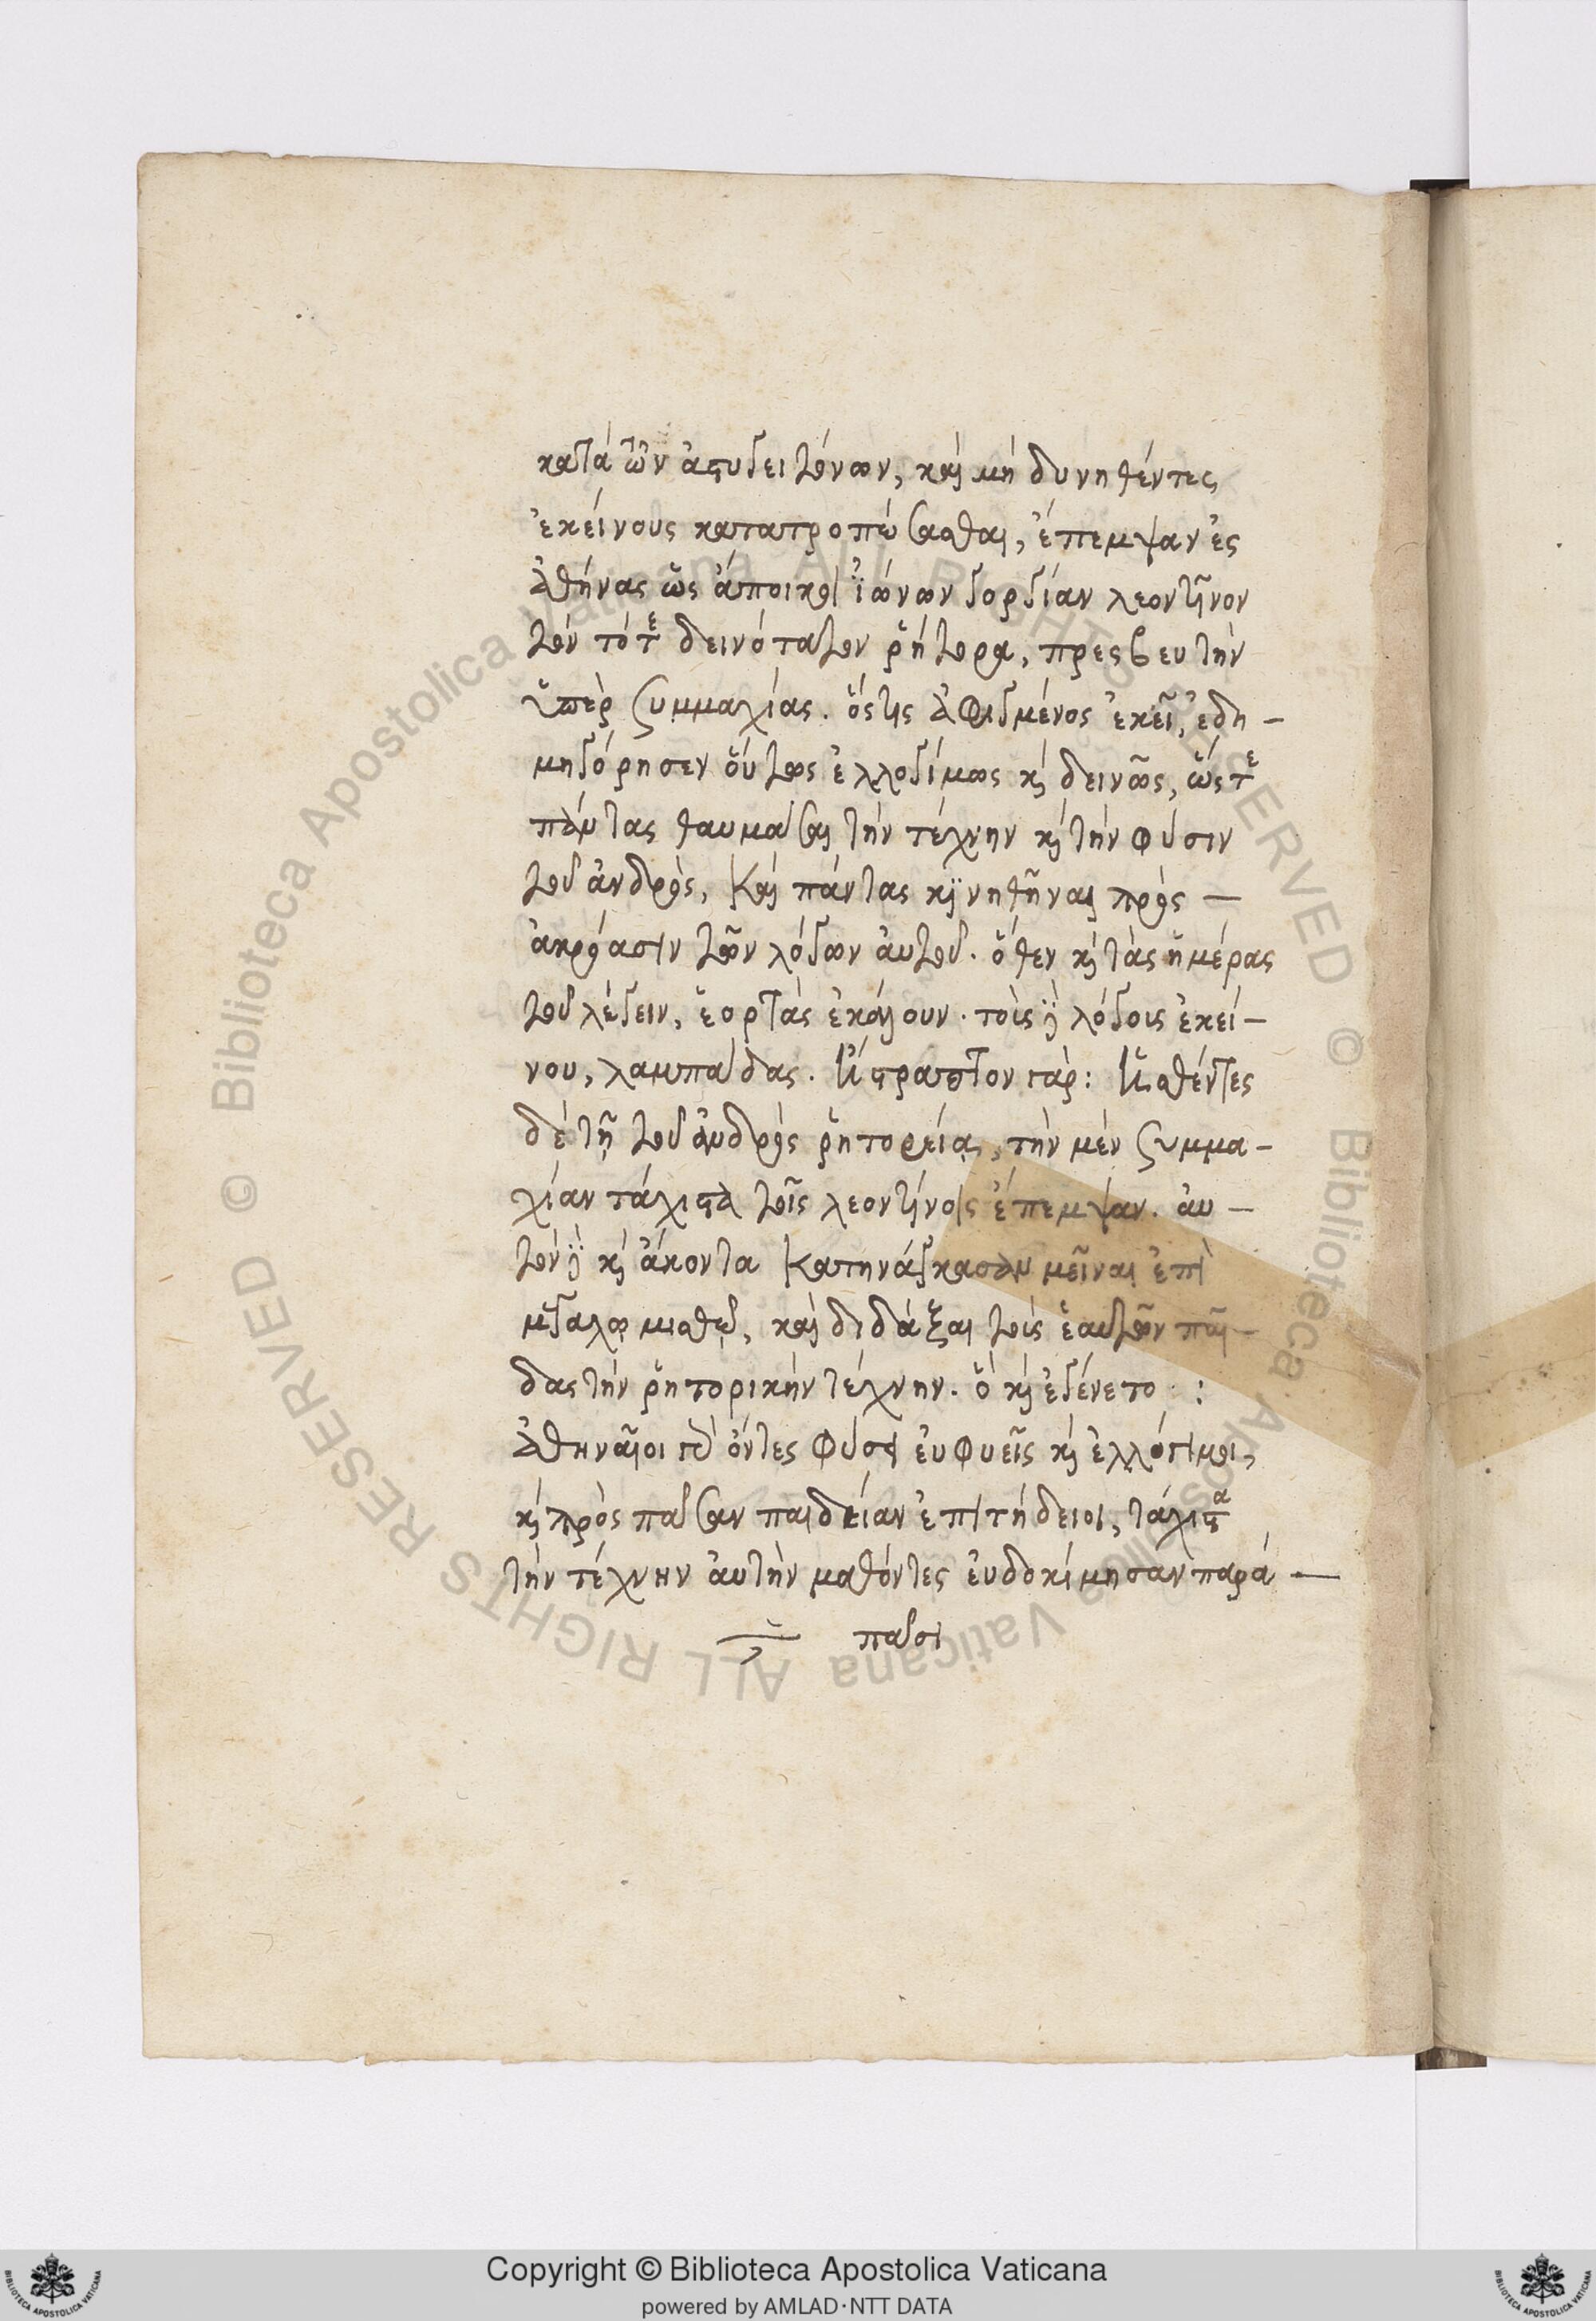 κατὰ τῶν ἀστυγειτόνων, καὶ μὴ δυνηθέντες
ἐκείνους κατατροπώσασθαι, ἔπεμψαν ἐς
ἀθήνας ὡς ἄποικοι ἰώνων γοργίαν λεοντῖνον
τὸν τότε δεινότατον ῥήτορα, πρεσβευτὴν
ὑπὲρ συμμαχίας. ὅστις ἀφιγμένος ἐκεῖ, ἐδη-
μηγόρησεν οὕτως ἐλλογίμως κ δεινῶς, ὥστε
πάντας θαυμάσαι τὴν τέχνην κ τὴν φύσιν
τοῦ ἀνδρὸς, καὶ πάντας κινηθῆναι πρὸς -
ἀκρόασιν τῶν λόγων αὐτοῦ. ὅθεν κ τὰς ἡμέρας
τοῦ λέγειν, ἑορτὰς ἐκάλουν. τοὺς δὲ λόγους ἐκεί-
νου, λαμπάδας. εὔστραπτον γὰρ: ἡσθέντες
δὲ τῇ τοῦ ἀνδρὸς ῥητορείᾳ, τὴν μὲν συμμα-
χίαν τάχιστα τοῖς λεοντίνοις ἔπεμψαν. αὐ-
τὸν δὲ κ ἄκοντα κατηνάγκασαν μεῖναι ἐπὶ
μεγάλῳ μισθῷ, καὶ διδάξαι τοὺς ἑαυτῶν παῖ-
δας τὴν ῥητορικὴν τέχνην. ὃ κ ἐγένετο :
ἀθηναῖοι γοῦν ὄντες φύσει εὐφυεῖς κ ἐλλόγιμοι,
κ πρὸς πᾶσαν παιδείαν ἐπιτήδειοι, τάχιστα
τὴν τέχνην αὐτὴν μαθόντες εὐδοκίμησαν παρὰ -
πᾶσι
Copyright © Biblioteca Apostolica Vaticana
powered by AMLAD·NTT DATA
© Biblioteca Apostolica Vaticana ALL RIGHTS RESERVED © Biblioteca Apostolica Vaticana ALL RIGHTS RESERVED